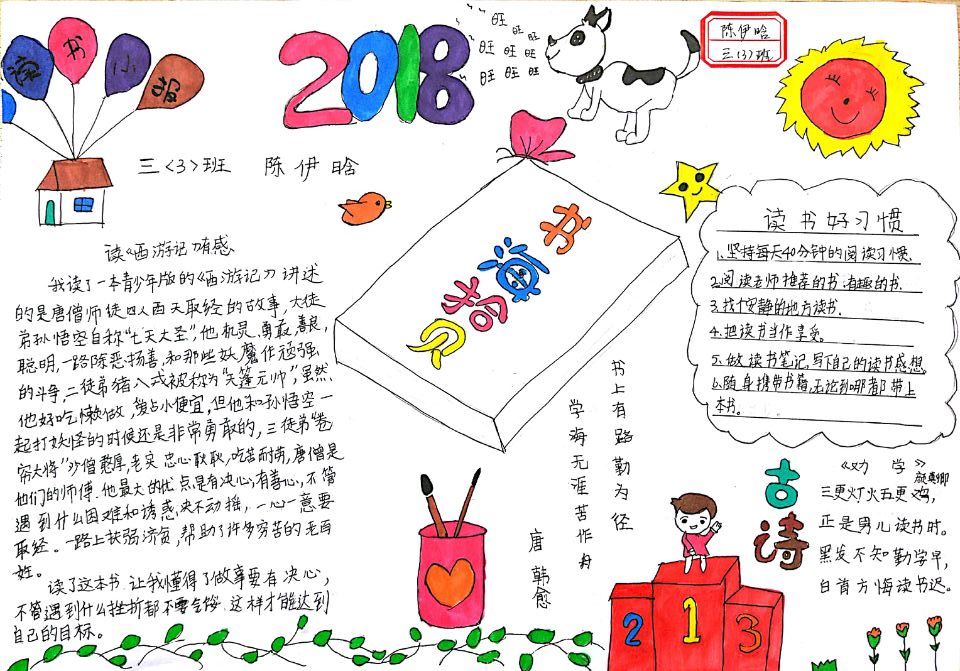 读书小报
2018
旺 旺旺
旺旺旺旺
旺旺旺
陈伊晗
三〈3〉班
三〈3〉班 陈伊晗
读《西游记》有感
我读了一本青少年版的《西游记》讲述
的是唐僧师徒四人西天取经的故事,大徒
弟孙悟空自称“七天大圣”,他机灵、勇敢、善良,
聪明,一路除恶扬善,和那些妖魔作顽强
的斗争,二徒弟猪八戒被称为“天蓬元帅”,虽然
他好吃懒做,爱占小便宜,但他和孙悟空一
起打妖怪的时候还是非常勇敢的,三徒弟“卷
帘大将”沙僧憨厚,老实 忠心耿耿,吃苦耐劳,唐僧是
他们的师傅.他最大的优点是有决心,有善心,不管
遇到什么困难和诱惑决不动摇,一心一意要
取经。一路上扶强济贫,帮助了许多穷苦的老百
姓。
读了这本书 让我懂得了做事要有决心,
不管遇到什么挫折都不要气馁.这样才能达到
自己的目标。
书海拾贝
书上有路勤为径
学海无涯苦作舟
唐 韩愈
读书好习惯
1.坚持每天40分钟的阅读习惯.
2.阅读老师推荐的书.有趣的书.
3.找个安静的地方读书.
4.把读书当作享受.
5.做读书笔记,写下自己的读书感想.
6.随身携带书籍,无论到哪都带上
本书.
古诗
《劝 学》
颜真卿
三更灯火五更鸡,
正是男儿读书时.
黑发不知勤学早,
白首方悔读书迟.
2 1 3